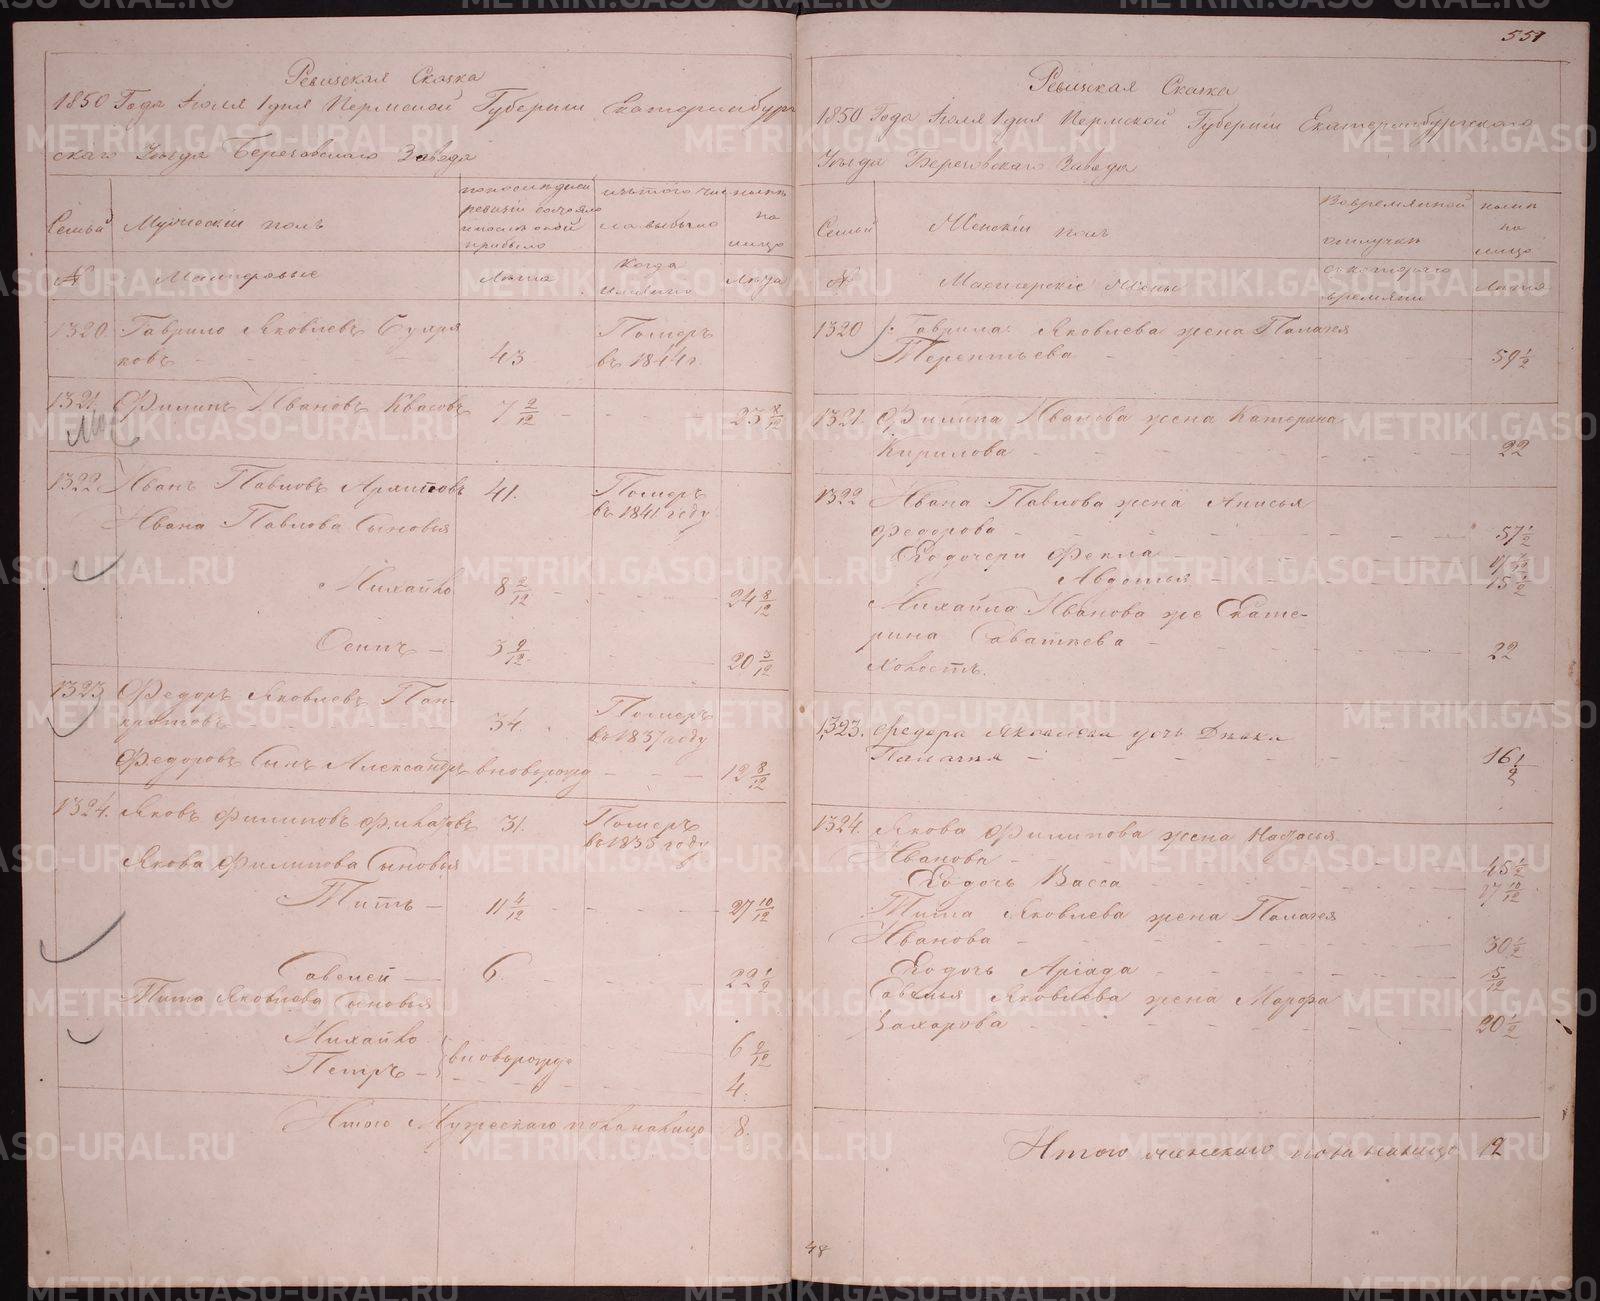 Ревизская Сказка
1850 Года Июля 1 дня Пермской Губернии Екатеринбург
скаго Уезда Березовскаго Завода
Семьи
Мужескій полъ
№
Мастеровые
Лета
Когда
Лета
1320 Гаврило Яковлевъ Сухря
ковъ 43 Померъ въ 1844 г.
1321 Филипъ Ивановъ Квасовъ 7 2/12 23 8/12
1322 Иванъ Павловъ Архиповъ 41. Померъ въ 1841 году
Ивана Павлова Сыновья
Михайло 8 2/12 24 8/12
Осипъ 3 9/12 20 3/12
1323 Федоръ Яковлевъ Пан-
кратовъ 34. Померъ въ 1837 году
Федоровъ Сынъ Александръ вноворожд 12 8/12
1324. Яковъ Филиповъ 31. Померъ въ 1835 году
Якова Филипова Сыновья
Титъ 11 4/12 27 10/12
Савелей 6. 22 1/2
Тита Яковлева Сыновья
Михайло 6 9/12
Петръ вноворожд 4.
Итого Мужескаго пола налицо 8.
551
Ревизская Сказка
1850 Года Июля 1 дня Пермской Губерніи Екатеринбургскаго
Уезда Березовскаго Завода
Семьи
Женскій полъ
№
Мастерскіе Жены
Лета
1320 Гаврила Яковлева жена Палагея
Терентьева 59 1/2
1321 Филипа Иванова жена Катерина
Кирилова 22
1322 Ивана Павлова жена Анисья
Федорова 57 1/2
Ея дочери Фекла
Авдотья 15 1/2
Михайла Иванова же Екате-
рина Саватеева 22
Холостъ.
1323. Федора Яковлева дочь Девка
Палагея 16 1/2
1324. Якова Филипова жена Настасья
Иванова 45 1/2
Ея дочь Васса 17 10/12
Тита Яковлева жена Палагея
Иванова 30 1/2
Ея дочь Аріада 5/12
Савелья Яковлева жена Марфа
Захарова 20 1/2
Итого женскаго пола налицо 12
48
METRIKI.GASO-URAL.RU